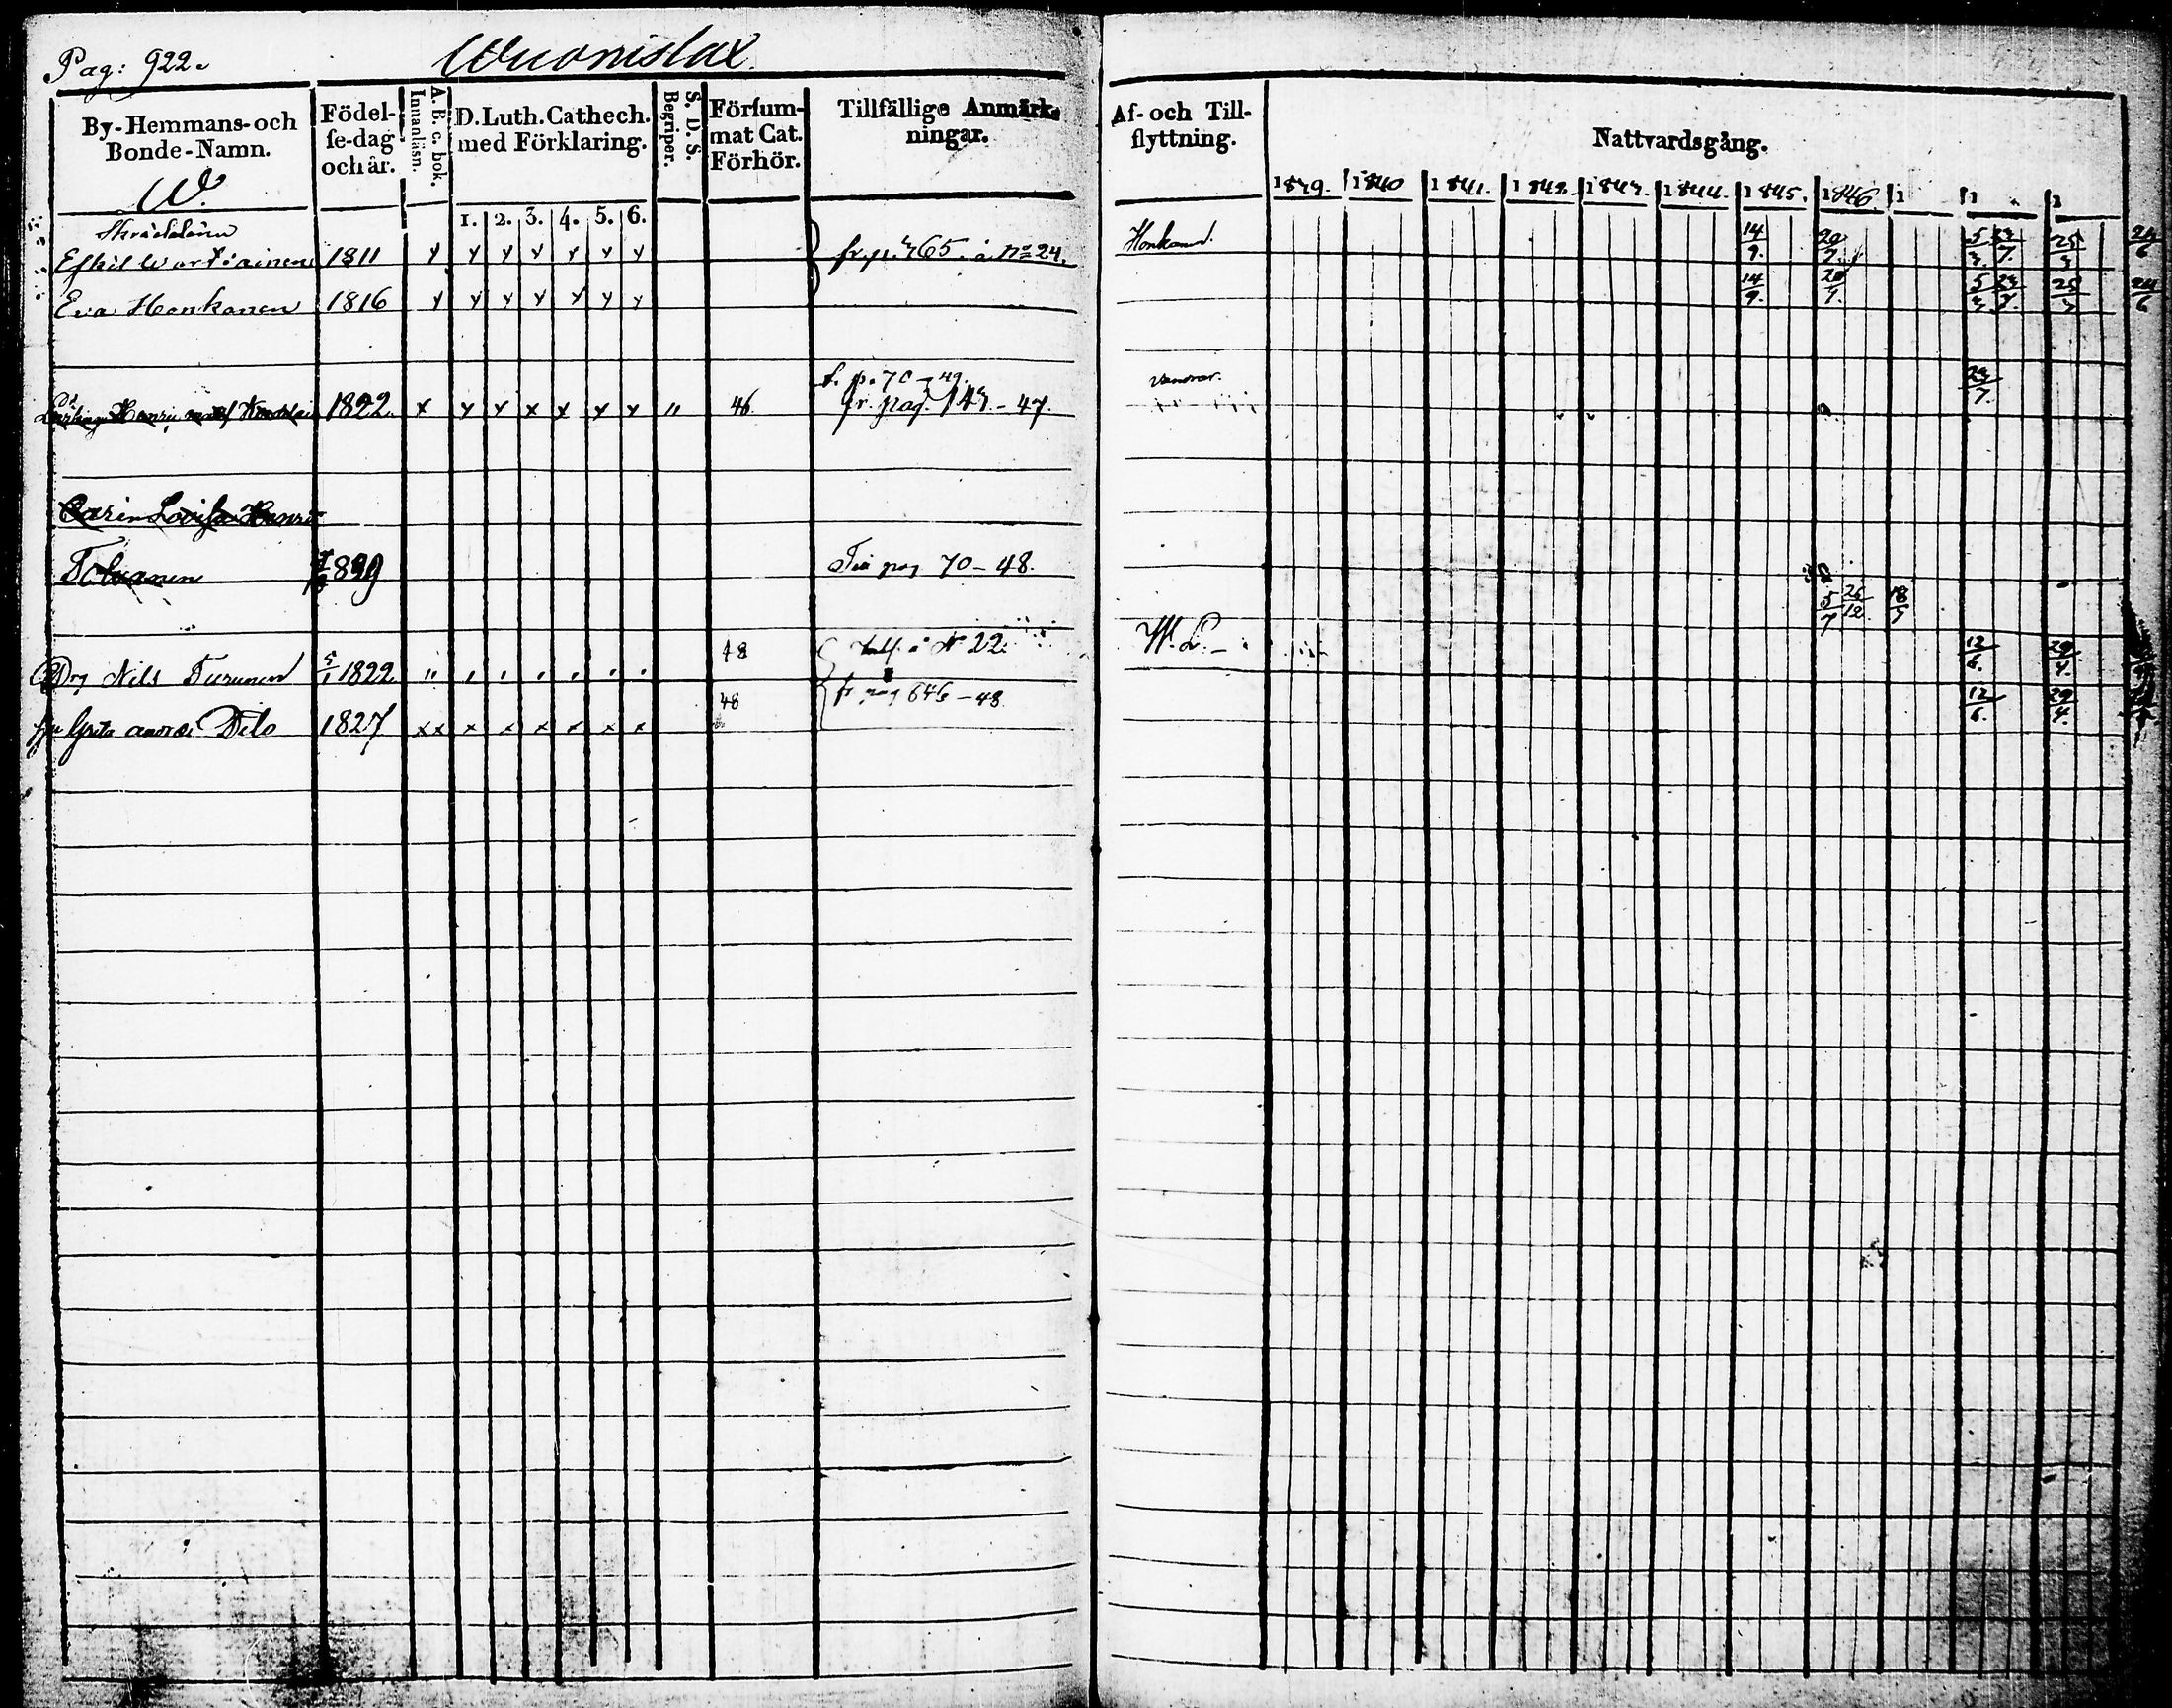 Pag: 922.
Wuonislax.
By-Hemmans-och Bonde-Namn.
Födel-se-dag och år.
A. B. c. bok.
Innanläsn.
D. Luth. Cathech. med Förklaring.
S. D. S.
Begriper.
Försum-mat Cat. Förhör.
Tillfällige Anmärk-ningar.
Af- och Till-flyttning.
Nattvardsgång.
W.
1. 2. 3. 4. 5. 6.
1839. 1840 1841. 1842. 1843. 1844. 1845. 1846 1 1 1
Eskil Wartiainen 1811 y y y y y y y fr. p. 465. å No 24. Honkav. 14/9. 20/7. 5/3 23/7. 25/3 24/6
Eva Honkanen 1816 y y y y y y y 14/9. 20/7. 5/3 23/7. 25/3 24/6
f. p. 70 - 49.
Henric 1822. x y y x y y y " 46 fr. pag. 143 - 47. 23/7.
Carin Lovisa Henric
Tolvanen 1839 Frå pag 70 - 48.
5/7 26/12 18/7
48 å No 22. W. L.
Drg Nils Turunen 5/1 1822 12/6. 29/4.
48 fr pag 646 - 48
Greta Dito 1827 x x x x x x x x 12/6. 29/4.